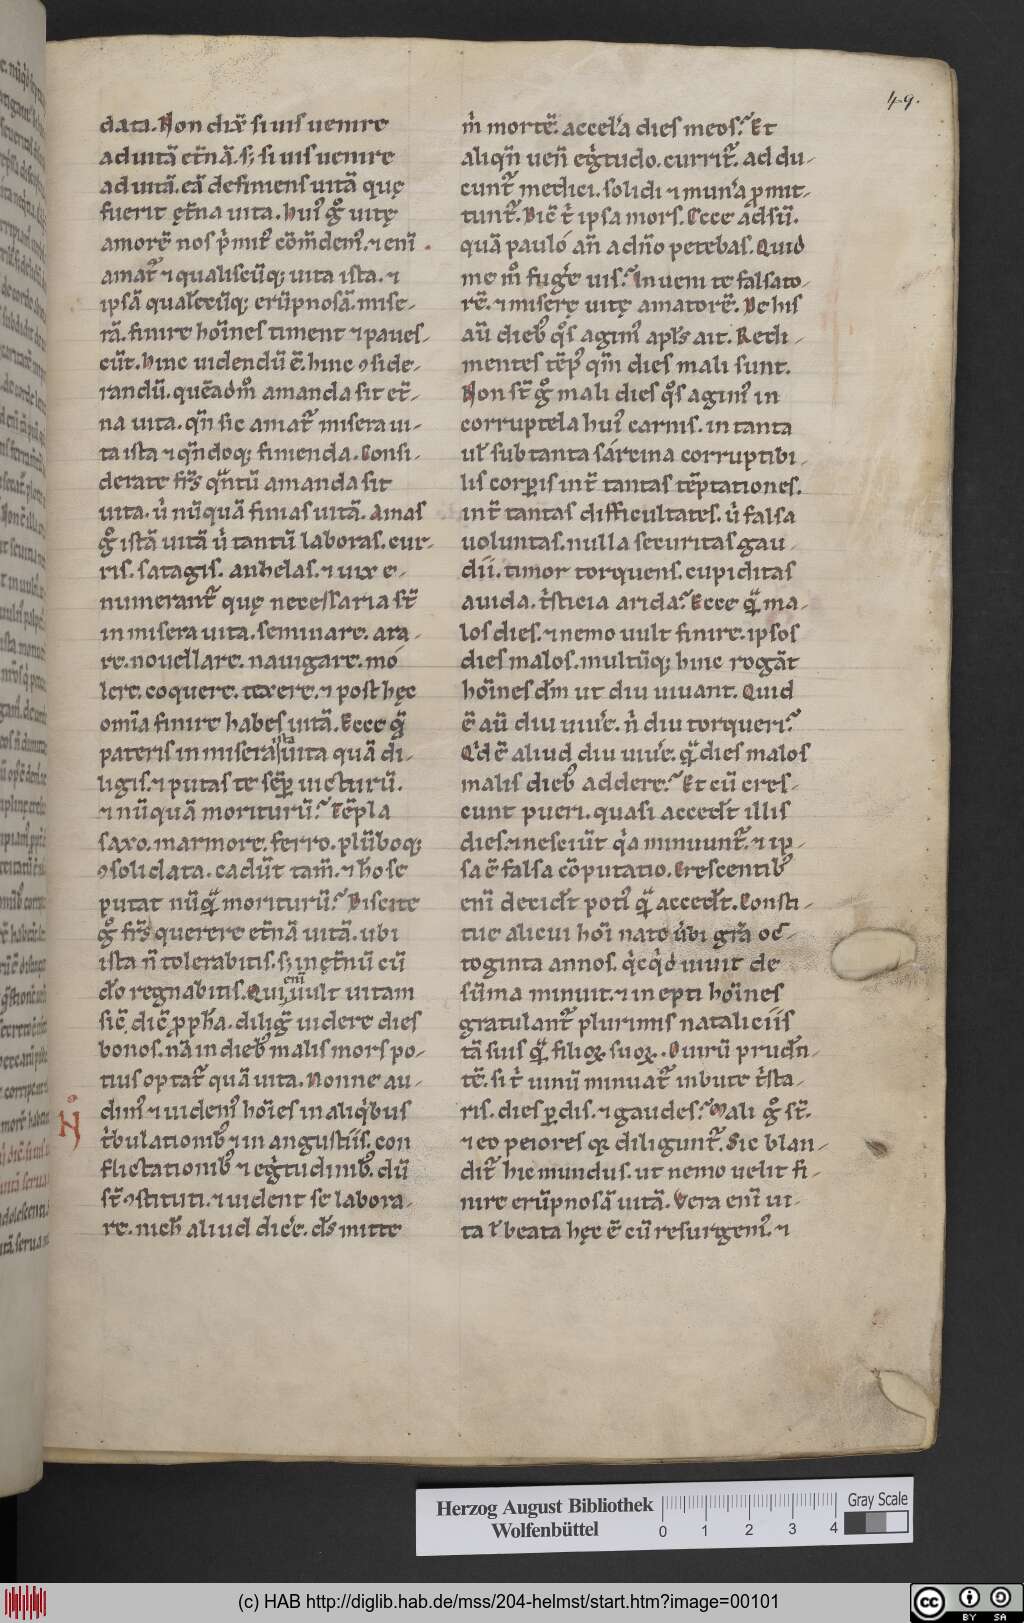 49.
data. Non dix̄ si uis uenire
ad uitā et̄nā. sꝫ si uis uenire
ad uitā. eā definiens uitā quę
fuerit ęt̄na uita. Huiꝰ gͦ uitę
amorē nos p̓mitꝰ cōm̄dem̓. ⁊ eni᷒
amat᷑ ⁊ qualiscūqꝫ uita ista. ⁊
ipsā qualēcūqꝫ erūpnosā. mise-
rā. finire hōines timent ⁊ paues-
cūt. Hinc uidendū ē. hinc ꝯside-
randū. quēadm̊ amanda sit et̄-
na uita. qn̄ sic amat᷑ misera ui-
ta ista ⁊ qn̄doqꝫ finienda. Consi-
derate fr̄s qͣntū amanda sit
uita. u̓ nūquā finias uitā. Amas
gͦ istā uitā u̓ tantū laboras. cur-
ris. satagis. anhelas. ⁊ uix e-
numerant᷑ quę necessaria st̄
in misera uita. seminare. ara-
re. nouellare. nauigare. mo-
lere. coquere. texere. ⁊ post hęc
om̄ia finire habes uitā. Ecce qͣ
pateris in miserā istā uita quā di-
ligis. ⁊ putas te sēp uicturū.
⁊ nūquā moriturū? Tēpla
saxo. marmore. ferro. plūboqꝫ
ꝯsolidata. cadūt tam̄. ⁊ hō se
putat nūqͣ moriturū? Discite
gͦ fr̄s querere et̄nā uitā. ubi
ista n̄ tolerabitis. sꝫ inęt̄nū cū
do regnabitis. Qui enī uult uitam
sic̄ dic̄ ꝓph̄a. diligͣ uidere dies
bonos. nā in diebꝰ malis mors po-
tius optat᷑ quā uita. Nonne au-
dim̓ ⁊ uidem̓ hōies in aliq̓bus
t̓bulationibꝰ ⁊ in angustiis. con
flictationibꝰ ⁊ eg̓tudinibꝰ. dū
st̄ ꝯstituti. ⁊ uident se labora-
re. nich̄ aliud dic̓e. ds̄ mitte
N
m̓ mortē. accel̓a dies meos? Et
aliqn̄ uen̄ eg̓tudo. currit᷑. ad du-
cunt᷑ medici. solidi ⁊ mun̓a ꝓmit-
tunt᷑. Dic̄ t̓ ipsa mors. Ecce adsū.
quā paulo an̄ a dn̄o petebas. Quid
me m̊ fug̓e uis? Inueni te falsato-
rē. ⁊ miserę uitę amatorē. De his
aū diebꝰ qͦs agim̓ apl̄s ait. Redi-
mentes tēpꝰ qm̄ dies mali sunt.
Non st̄ gͦ mali dies qͦs agim̓ in
corruptela huiꝰ carnis. in tanta
ul̄ sub tanta sarcina corruptibi-
lis corꝑis int̄ tantas tēptationes.
int̄ tantas difficultates. u̓ falsa
uoluntas. nulla securitas gau-
dii. timor torquens. cupiditas
auida. t̓sticia arida? Ecce qͣ ma-
los dies. ⁊ nemo uult finire. ipsos
dies malos. multūqꝫ hinc rogāt
hōines dm̄ ut diu uiuant. Quid
ē aū diu uiu̓e. n̓ diu torqueri?
Q̓d ē aliud diu uiu̓e. qͣ dies malos
malis diebꝰ addere? Et cū cres-
cunt pueri. quasi accedt̄ illis
dies. ⁊ nesciūt q̓a minuunt᷑. ⁊ ip-
sa ē falsa cōputatio. Crescentibꝰ
eni᷒ decidt̄ potiꝰ qͣ accedt̄. Consti-
tue alicui hōi nato u̓bi grā oc-
toginta annos. q̓cq̓d uiuit de
sūma minuit. ⁊ inepti hōines
gratulant᷑ plurimis nataliciis
tā suis qͣ filioꝝ suoꝝ. O uirū prudn̄-
tē. si t̓ uinū minuat᷑ in utre t̓sta-
ris. dies ꝑdis. ⁊ gaudes? Mali gͦ st̄.
⁊ eo peiores qꝛ diligunt᷑. Sic blan-
dit᷑ hic mundus. ut nemo uelit fi-
nire erūpnosā uitā. Vera eni᷒ ui-
ta ul̄ beata hęc ē cū resurgem̓. ⁊
Herzog August Bibliothek
Wolfenbüttel
0 1 2 3 4
Gray Scale
(c) HAB http://diglib.hab.de/mss/204-helmst/start.htm?image=00101
cc BY SA